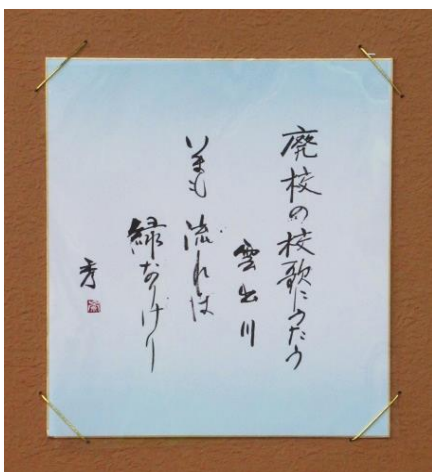 廃校の校歌にうたう
雲出川
いまも流れは
緑なりけり
秀